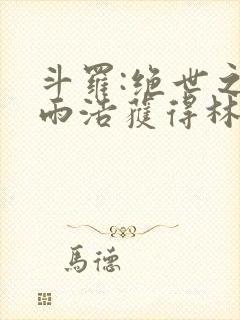 斗羅:绝世之
雨浩獲得林
馬德